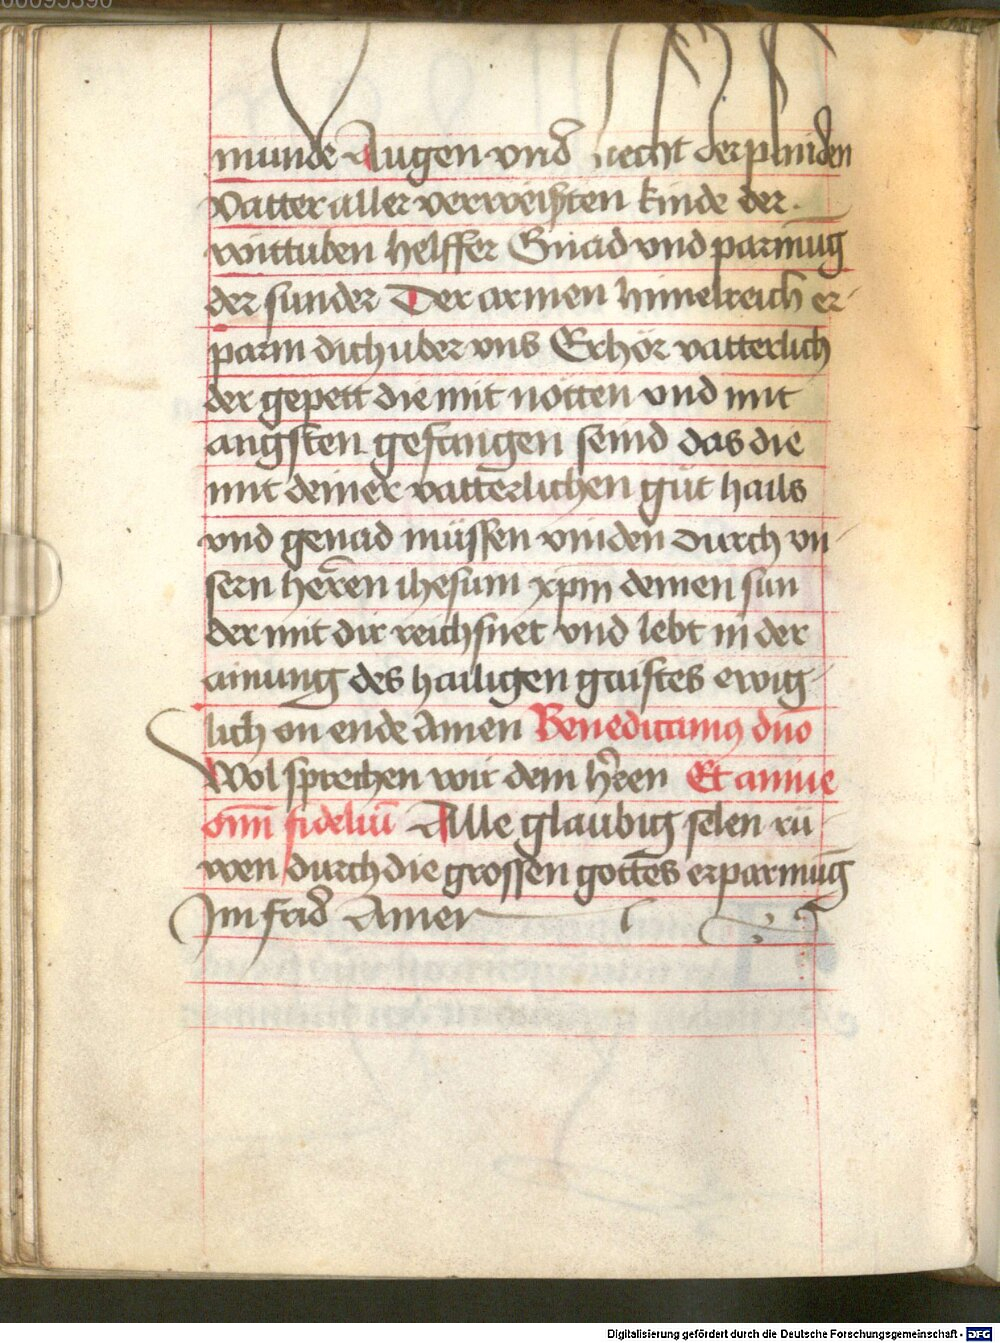 munde Augen vnd liecht der plinden
vatter aller verweißten kinde der
wittuben helffer Gnad vnd parmūg
der sunder Der armen himelreich er
parm dich uber vns Erhör vatterlich
der gepett die mit nötten vnd mit
angsten gefangen seind das die
mit deiner vatterlichen güt hails
vnd genad müssen vinden durch vn
sern herren ihesum xpm deinen sun
der mit dir reichsnet vnd lebt in der
ainung des hailigen gaistes ewig
lich on ende Amen Benedicamus dño
Wol sprechen wir dem hren Et anime
om̄ fideliū Alle glaubig selen rü
wen durch die grossen gottes erparmūg
Im frid Amen
Digitalisierung gefördert durch die Deutsche Forschungsgemeinschaft - DFG